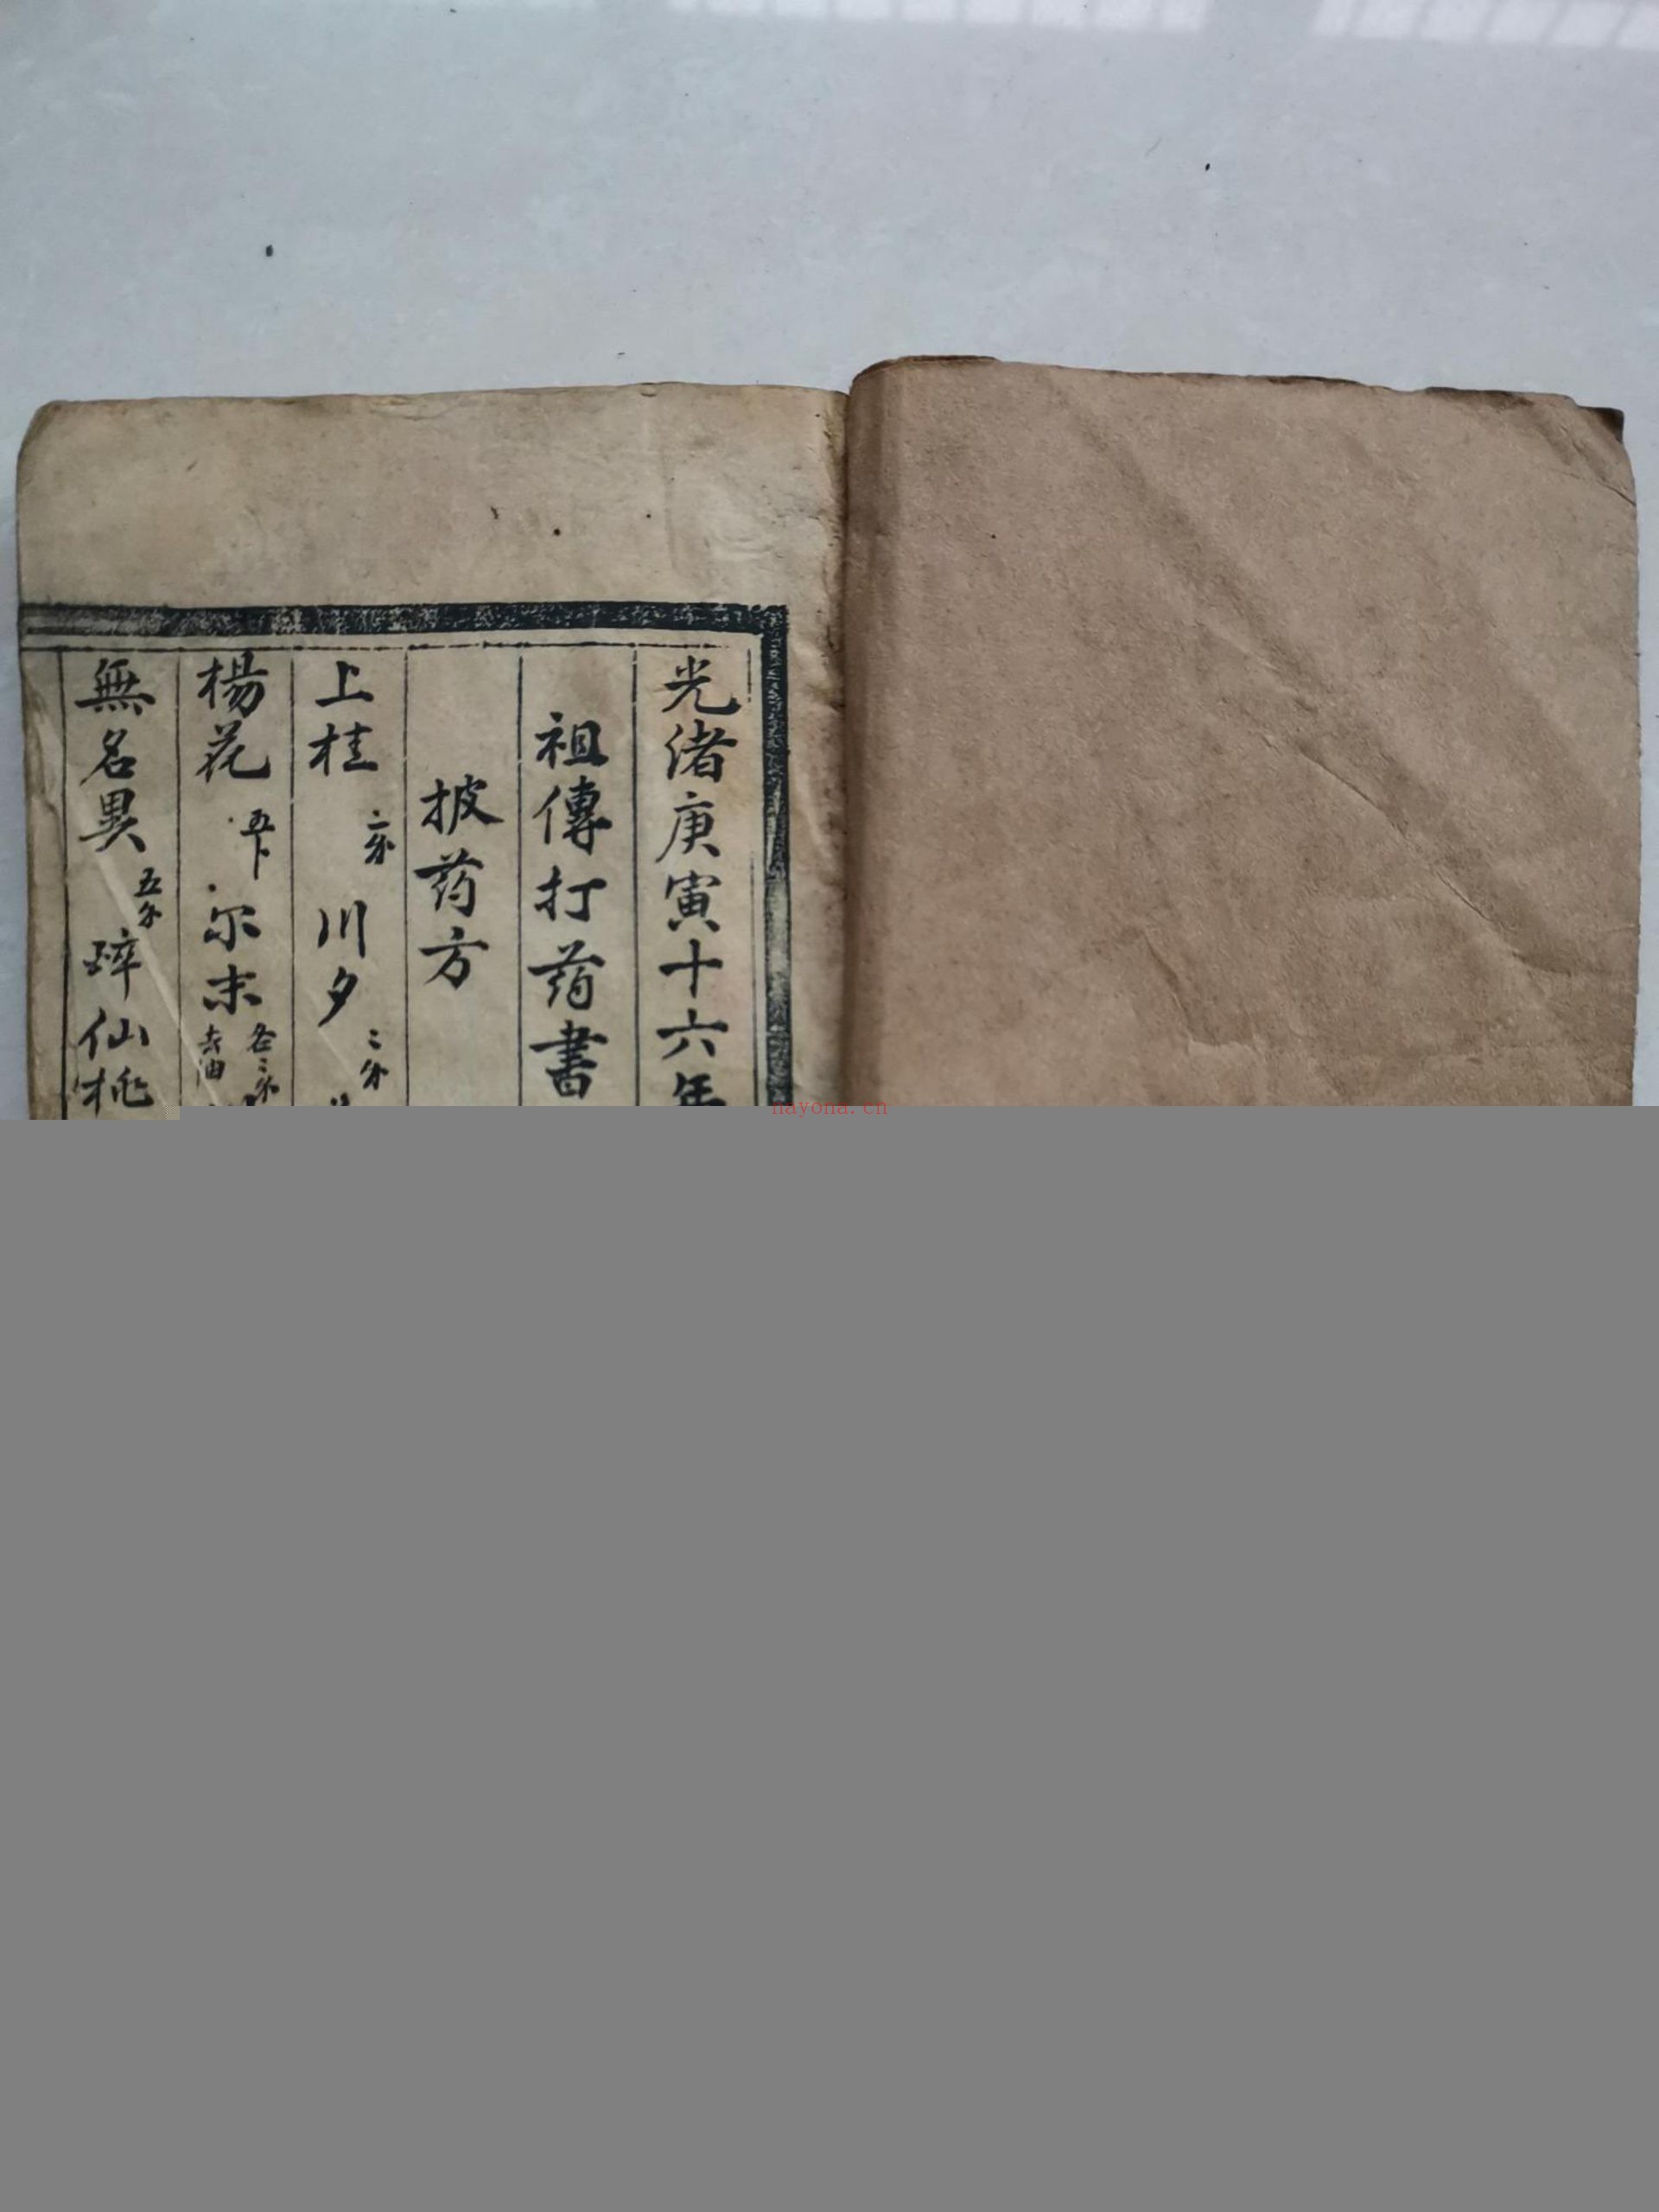 光绪庚寅十六年
祖傳打药書
披药方
上桂 二分 川夕 二分
楊花 五卜 尔末 各二分 去油
無名異 五分 碎仙桃
nayona.cn